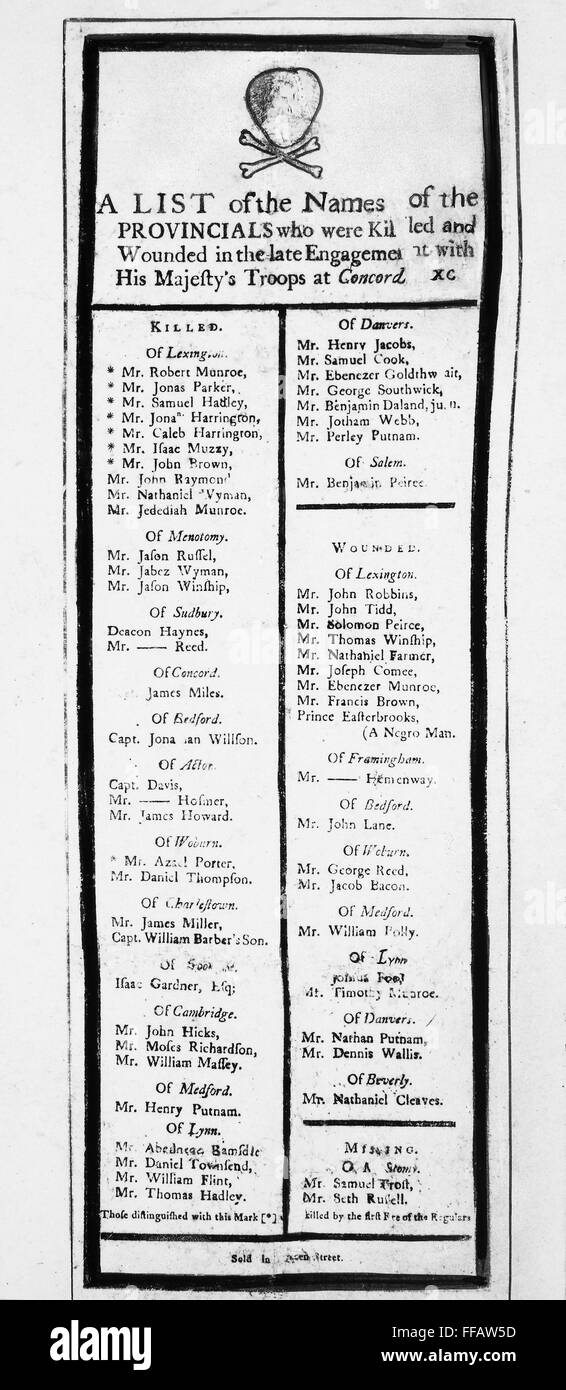 A LIST of the Names of the
PROVINCIALS who were Killed and
Wounded in the late Engagement with
His Majeſty's Troops at Concord
KILLED.
Of Lexington.
* Mr. Robert Munroe,
* Mr. Jonas Parker,
* Mr. Samuel Hadley,
* Mr. Jonaⁿ Harrington,
* Mr. Caleb Harrington,
* Mr. Iſaac Muzzy,
* Mr. John Brown,
Mr. John Raymond
Mr. Nathaniel Wyman,
Mr. Jedediah Munroe.
Of Menotomy.
Mr. Jaſon Ruſſel,
Mr. Jabez Wyman,
Mr. Jaſon Winſhip,
Of Sudbury.
Deacon Haynes,
Mr. —— Reed.
Of Concord.
James Miles.
Of Bedford.
Capt. Jonathan Willſon.
Of Acton.
Capt. Davis,
Mr. —— Hoſmer,
Mr. James Howard.
Of Woburn.
* Mr. Azael Porter,
Mr. Daniel Thompſon.
Of Charleſtown.
Mr. James Miller,
Capt. William Barber's Son.
Of
Iſaac Gardner, Eſq;
Of Cambridge.
Mr. John Hicks,
Mr. Moſes Richardſon,
Mr. William Maſſey.
Of Medford.
Mr. Henry Putnam.
Of Lynn.
Mr. Abednego Ramſdell
Mr. Daniel Townſend,
Mr. William Flint,
Mr. Thomas Hadley.
Thoſe diſtinguiſhed with this Mark [*]
Of Danvers.
Mr. Henry Jacobs,
Mr. Samuel Cook,
Mr. Ebenezer Goldthwait,
Mr. George Southwick,
Mr. Benjamin Daland, jun.
Mr. Jotham Webb,
Mr. Perley Putnam.
Of Salem.
Mr. Benjamin Peirce.
WOUNDED.
Of Lexington.
Mr. John Robbins,
Mr. John Tidd,
Mr. Solomon Peirce,
Mr. Thomas Winſhip,
Mr. Nathaniel Farmer,
Mr. Joſeph Comee,
Mr. Ebenezer Munroe,
Mr. Francis Brown,
Prince Eaſterbrooks,
(A Negro Man.
Of Framingham.
Mr. —— Hemenway.
Of Bedford.
Mr. John Lane.
Of Woburn.
Mr. George Reed,
Mr. Jacob Bacon.
Of Medford.
Mr. William Polly.
Of Lynn
Joſhua
Mr. Timothy Munroe.
Of Danvers.
Mr. Nathan Putnam,
Mr. Dennis Wallis.
Of Beverly.
Mr. Nathaniel Cleaves.
MISSING.
Mr. Samuel Froſt,
Mr. Seth Ruſſell.
killed by the firſt Fire of the Regulars
Sold in Queen Street.
alamy
alamy
a
Image ID: FFAW5D
www.alamy.com